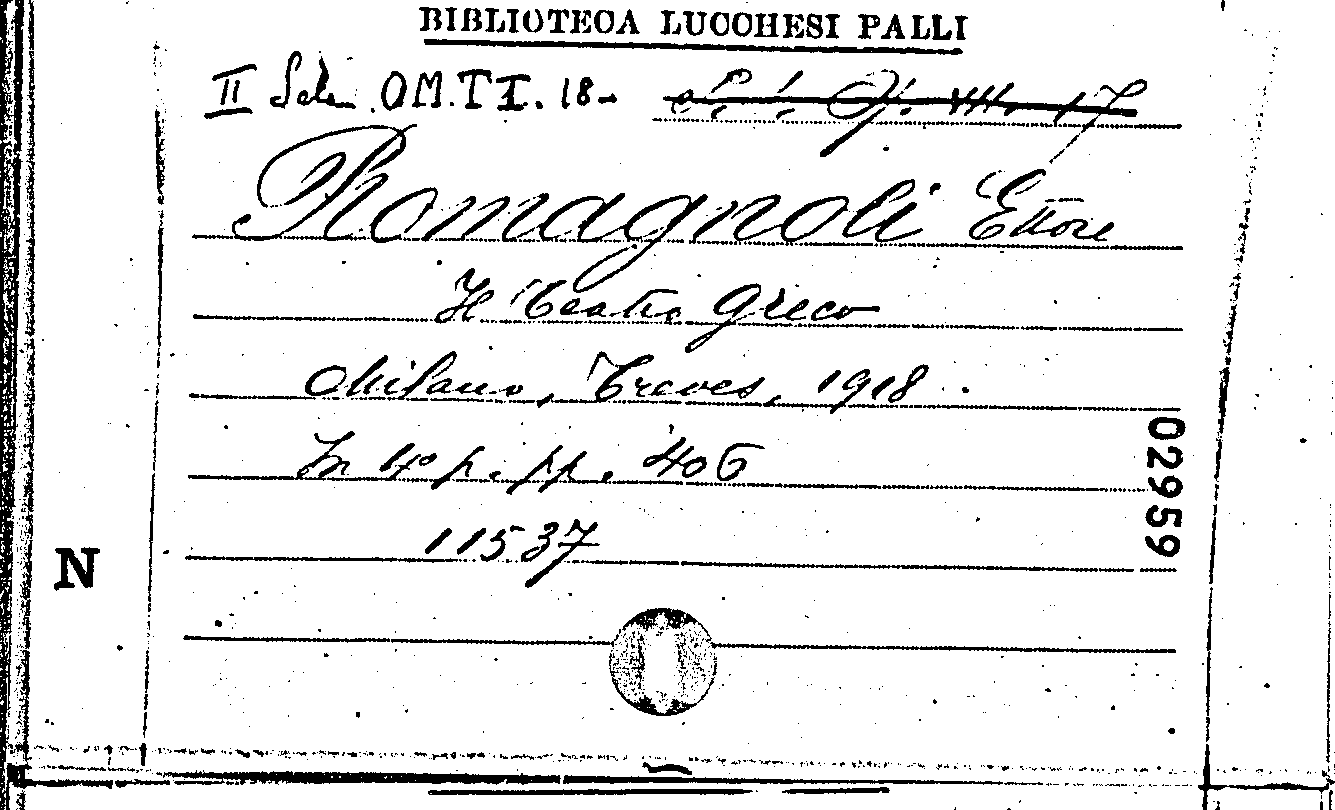 BIBLIOTECA LUCCHESI PALLI
II Sala O.M.T I. 18-
Romagnoli Ettore
Il Teatro Greco
Milano, Treves, 1918
In 4º p. pp. 406
11537
N
02959